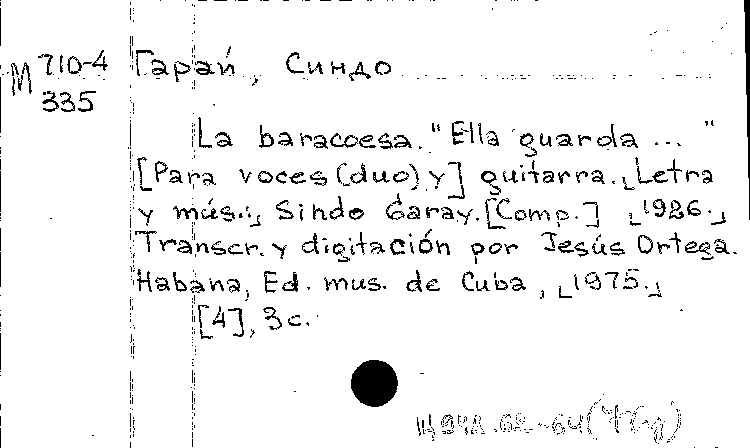 М 710-4 Гарай, Синдо
335
La baracoesa. "Ella guarda ... "
[Para voces (duo) y] guitarra. ⌊Letra
y mús.:⌋ Sindo Garay. [Comp.] ⌊1926.⌋
Transcr. y digitación por Jesús Ortega.
Habana, Ed. mus. de Cuba, ⌊1975.⌋
[4], 3 с.